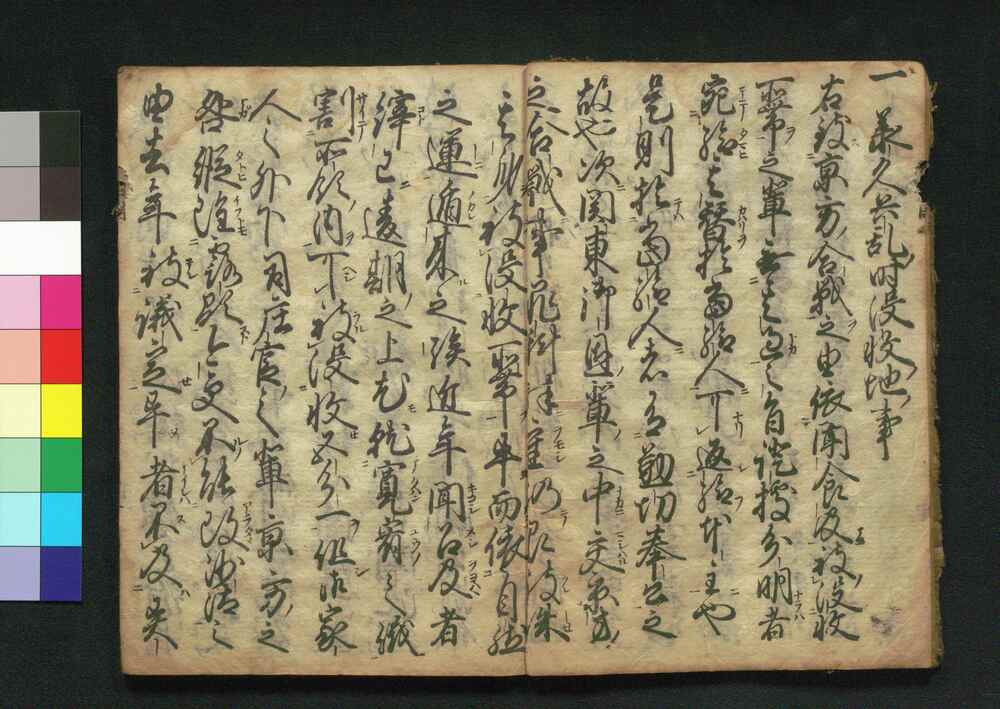 一 承久兵乱時没収地事
右致京方合戦之由依聞食及被没収
所帯之輩無其過之旨證據分明者
宛給其替於當給人可返給本主也
是則於當給人者有勲功奉公之
故也次関東御恩輩之中交京方
之合戦事罪科殊重仍即被誅
其身被没収所帯畢而依自然
之運遁来之族近年聞召及者
縡已違期之上尤就寛宥之儀
割所領内可被没収五分一但御家
人之外下司庄官之輩京方之
咎縦雖露顕今更不能改沙汰之
由去年被議定畢者不及異